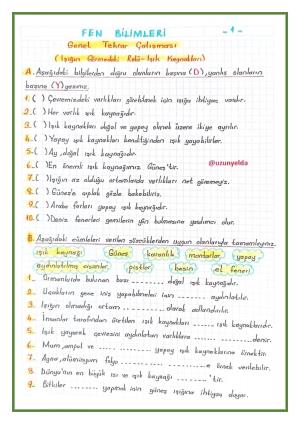 FEN BİLİMLERİ
-1-
Genel Tekrar Çalışması
(Işığın Görmedeki Rolü-Işık Kaynakları)
A. Aşağıdaki bilgilerden doğru olanların başına (D), yanlış olanların
başına (Y) yazınız.
1. ( ) Çevremizdeki varlıkları görebilmek için ışığa ihtiyaç vardır.
2. ( ) Her varlık ışık kaynağıdır.
3. ( ) Işık kaynakları doğal ve yapay olmak üzere ikiye ayrılır.
4. ( ) Yapay ışık kaynakları kendiliğinden ışık yayabilirler.
5. ( ) Ay, doğal ışık kaynağıdır.
6. ( ) En önemli ışık kaynağımız Güneş'tir.
@uzunyelda
7. ( ) Işığın az olduğu ortamlarda varlıkları net göremeyiz.
8. ( ) Güneş'e çıplak gözle bakabiliriz.
9. ( ) Araba farları yapay ışık kaynağıdır.
10. ( ) Deniz fenerleri gemilerin yön bulmasına yardımcı olur.
B. Aşağıdaki cümleleri verilen sözcüklerden uygun olanlarıyla tamamlayınız.
ışık kaynağı Güneş karanlık mantarlar yapay
aydınlatılmış cisimler pistler besin el feneri
1. Ormanlarda bulunan bazı ......... doğal ışık kaynağıdır.
2. Uçakların gece iniş yapabilmeleri için ......... aydınlatılır.
3. Işığın olmadığı ortam ......... olarak adlandırılır.
4. İnsanlar tarafından üretilen ışık kaynakları ......... ışık kaynaklarıdır.
5. Işık yayarak çevresini aydınlatan varlıklara ......... denir.
6. Mum, ampul ve ......... yapay ışık kaynaklarına örnektir.
7. Ayna, alüminyum folyo ......... e örnek verilebilir.
8. Dünya'nın en büyük ısı ve ışık kaynağı ......... 'tir.
9. Bitkiler ......... yapmak için güneş ışığına ihtiyaç duyar.